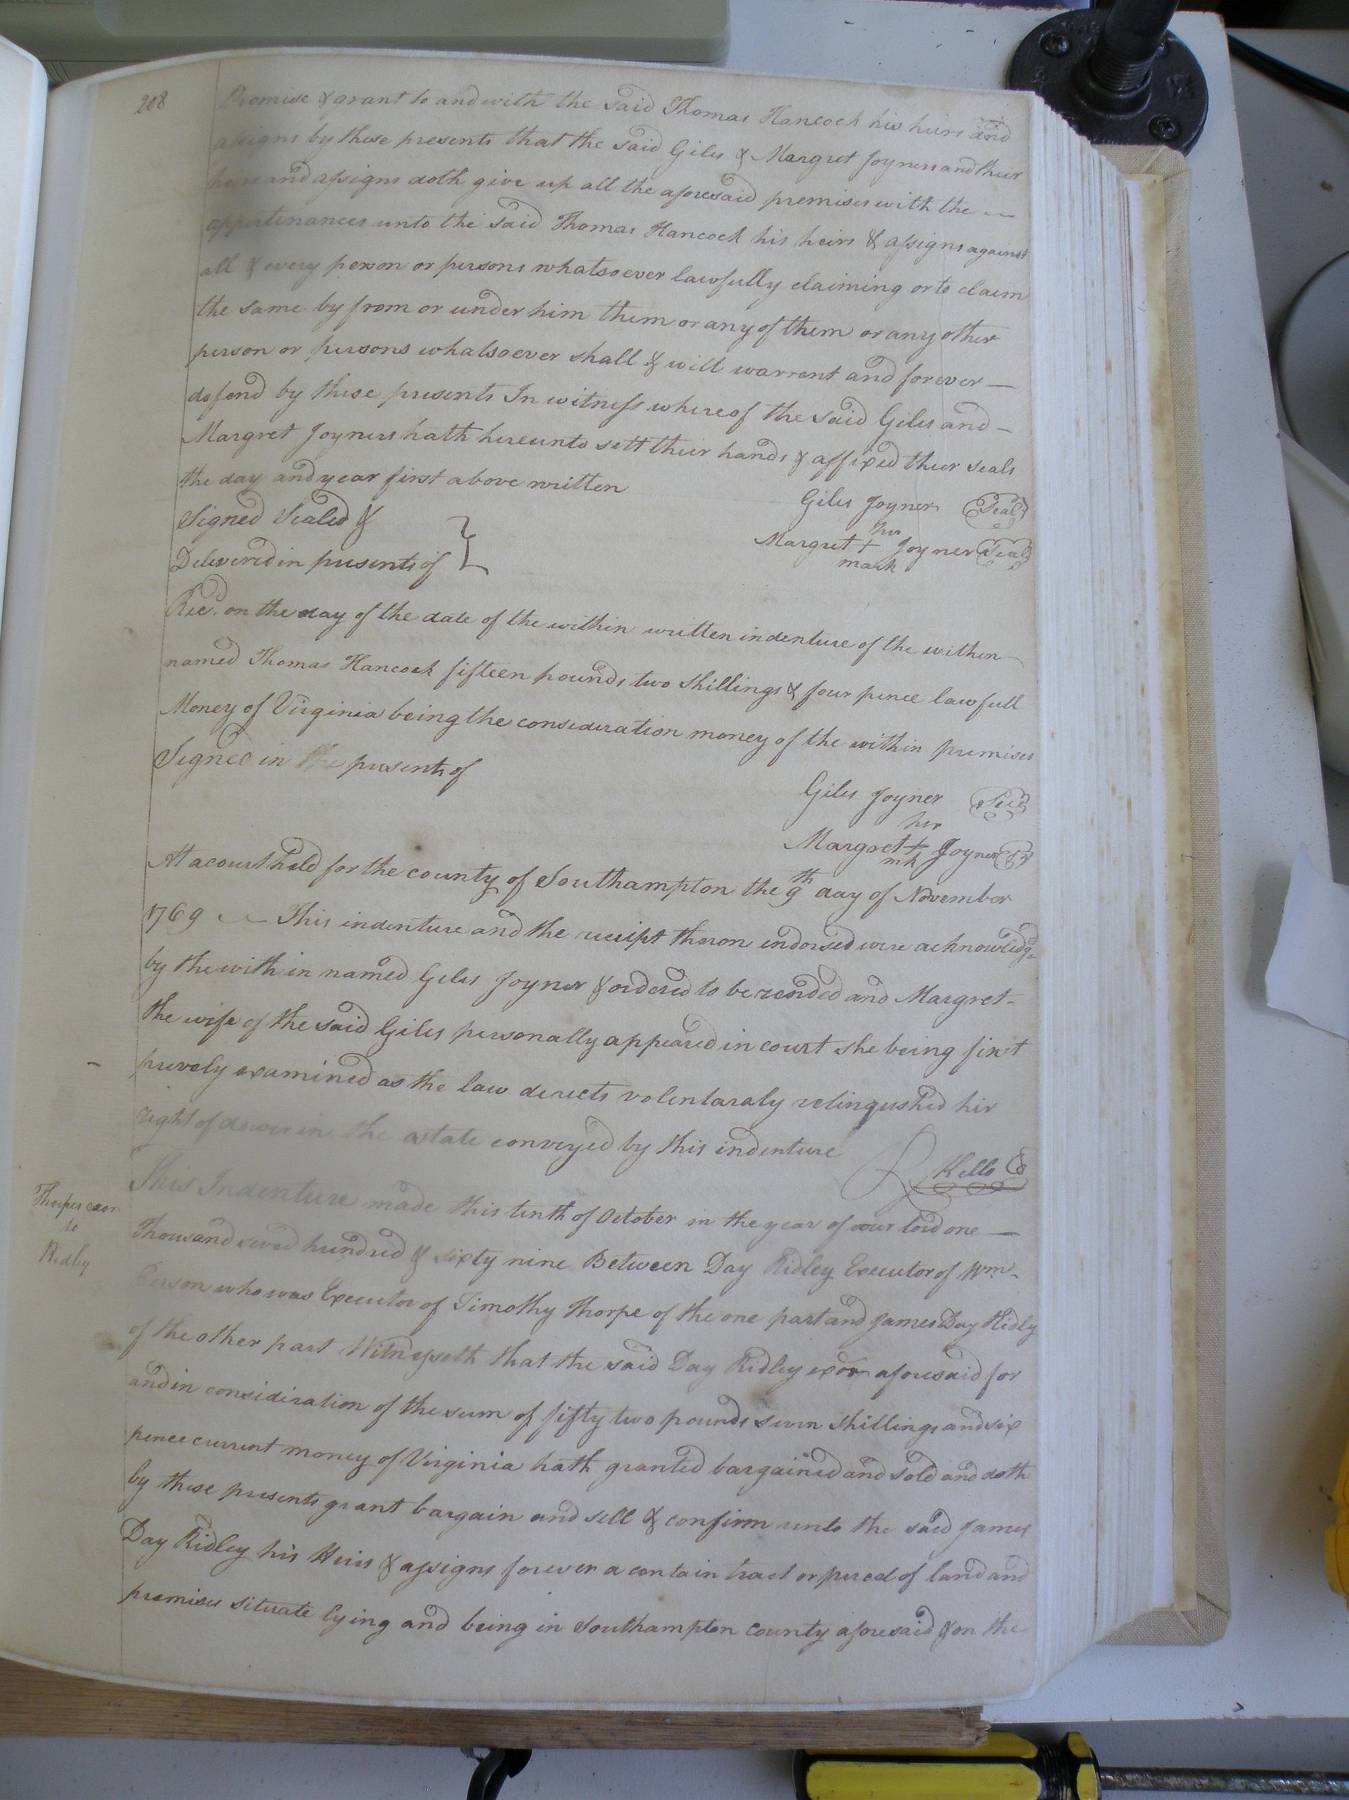 208
Promise & grant to and with the said Thomas Hancock his heirs and
assigns by these presents that the said Giles & Margret Joyners and their
heirs and assigns doth give up all the aforesaid premises with the
appertinances unto the said Thomas Hancock his heirs & assigns against
all & every person or persons whatsoever lawfully claiming or to claim
the same by from or under him them or any of them or any other
person or persons whatsoever shall & will warrent and forever —
defend by these presents In witness whereof the said Giles and —
Margret Joyners hath hereunto sett their hands & affixed their seals
the day and year first above written
Giles Joyner Seal
Signed Sealed &
her
Margret + Joyner Seal
mark
Delivered in presents of
Rec. on the day of the date of the within written indenture of the within
named Thomas Hancock fifteen pounds two shillings & four pence lawfull
Money of Virginia being the consideration money of the within premises
Signed in the presents of
Giles Joyner Seal
her
Margret + Joyner
mk
At a court held for the county of Southampton the 9th day of November
1769 — This indenture and the receipt theron indorsed were acknowledg
by the with in named Giles Joyner & ordered to be recorded and Margret
the wife of the said Giles personally appeared in court she being first
prively examined as the law directs volentaraly relingushed her
right of dower in the astate conveyed by this indenture
Kello
Thorpes exor
to
Ridley
This Indenture made this tenth of October in the year of our lord one —
Thousand seven hundred & sixty nine Between Day Ridley Executor of Wm
Person who was Executor of Timothy Thorpe of the one part and James Day Ridly
of the other part Witnesseth that the said Day Ridley exor aforesaid for
and in consideration of the sum of fifty two pounds seven shillings and six
pence current money of Virginia hath granted bargained and sold and doth
by these presents grant bargain and sell & confirm unto the said James
Day Ridley his Heirs & assigns forever a certain tract or parcel of land and
premises situate lying and being in Southampton county aforesaid & on the